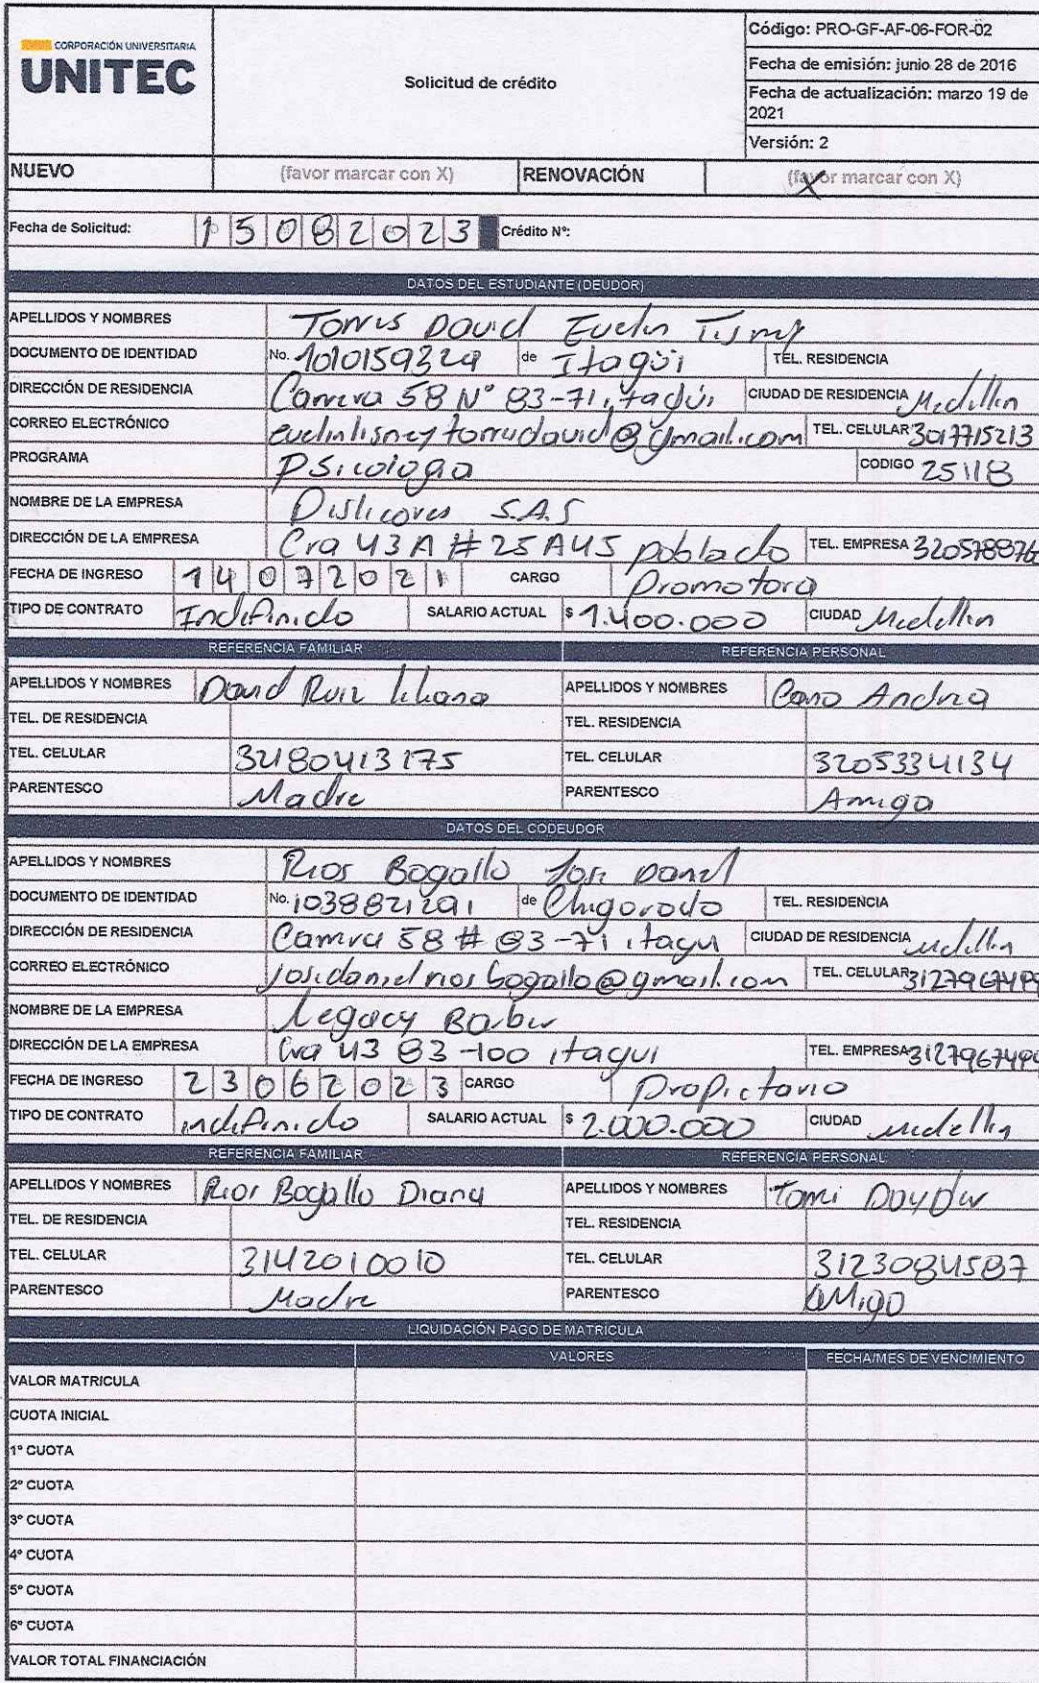 CORPORACIÓN UNIVERSITARIA
UNITEC
Solicitud de crédito
Código: PRO-GF-AF-06-FOR-02
Fecha de emisión: junio 28 de 2016
Fecha de actualización: marzo 19 de 2021
Versión: 2
NUEVO (favor marcar con X) RENOVACIÓN (favor marcar con X) X
Fecha de Solicitud: 15082023 Crédito Nº:
DATOS DEL ESTUDIANTE (DEUDOR)
APELLIDOS Y NOMBRES Torres David Evelin
DOCUMENTO DE IDENTIDAD No. 1010159329 de Itagüi TEL. RESIDENCIA
DIRECCIÓN DE RESIDENCIA Carrera 58 N° 83-71 itagüi CIUDAD DE RESIDENCIA Medellin
CORREO ELECTRÓNICO evelinlisneytorresdavid@gmail.com TEL. CELULAR 3017715213
PROGRAMA Psicologia CODIGO 25118
NOMBRE DE LA EMPRESA Dislicores S.A.S
DIRECCIÓN DE LA EMPRESA Cra 43A # 25A45 poblado TEL. EMPRESA 320578876
FECHA DE INGRESO 14072021 CARGO Promotora
TIPO DE CONTRATO Indefinido SALARIO ACTUAL $ 1.400.000 CIUDAD Medellin
REFERENCIA FAMILIAR REFERENCIA PERSONAL
APELLIDOS Y NOMBRES David Ruiz liliana APELLIDOS Y NOMBRES Cano Andrea
TEL. DE RESIDENCIA TEL. RESIDENCIA
TEL. CELULAR 32180413175 TEL. CELULAR 3205334134
PARENTESCO Madre PARENTESCO Amiga
DATOS DEL CODEUDOR
APELLIDOS Y NOMBRES Rios Bogallo Jose Daniel
DOCUMENTO DE IDENTIDAD No. 1038821291 de Chigorodo TEL. RESIDENCIA
DIRECCIÓN DE RESIDENCIA Carrera 58 # 83-71 itagui CIUDAD DE RESIDENCIA medellin
CORREO ELECTRÓNICO josedanielriosbogallo@gmail.com TEL. CELULAR 3127967499
NOMBRE DE LA EMPRESA Legacy Barber
DIRECCIÓN DE LA EMPRESA Cra 43 83-100 itagui TEL. EMPRESA 3127967499
FECHA DE INGRESO 23062023 CARGO Propietario
TIPO DE CONTRATO indefinido SALARIO ACTUAL $ 2.000.000 CIUDAD medellin
REFERENCIA FAMILIAR REFERENCIA PERSONAL
APELLIDOS Y NOMBRES Rios Bogallo Diana APELLIDOS Y NOMBRES
TEL. DE RESIDENCIA TEL. RESIDENCIA
TEL. CELULAR 3142010010 TEL. CELULAR 3123084587
PARENTESCO Madre PARENTESCO amigo
LIQUIDACIÓN PAGO DE MATRICULA
VALORES FECHA/MES DE VENCIMIENTO
VALOR MATRICULA
CUOTA INICIAL
1º CUOTA
2º CUOTA
3º CUOTA
4º CUOTA
5º CUOTA
6º CUOTA
VALOR TOTAL FINANCIACIÓN